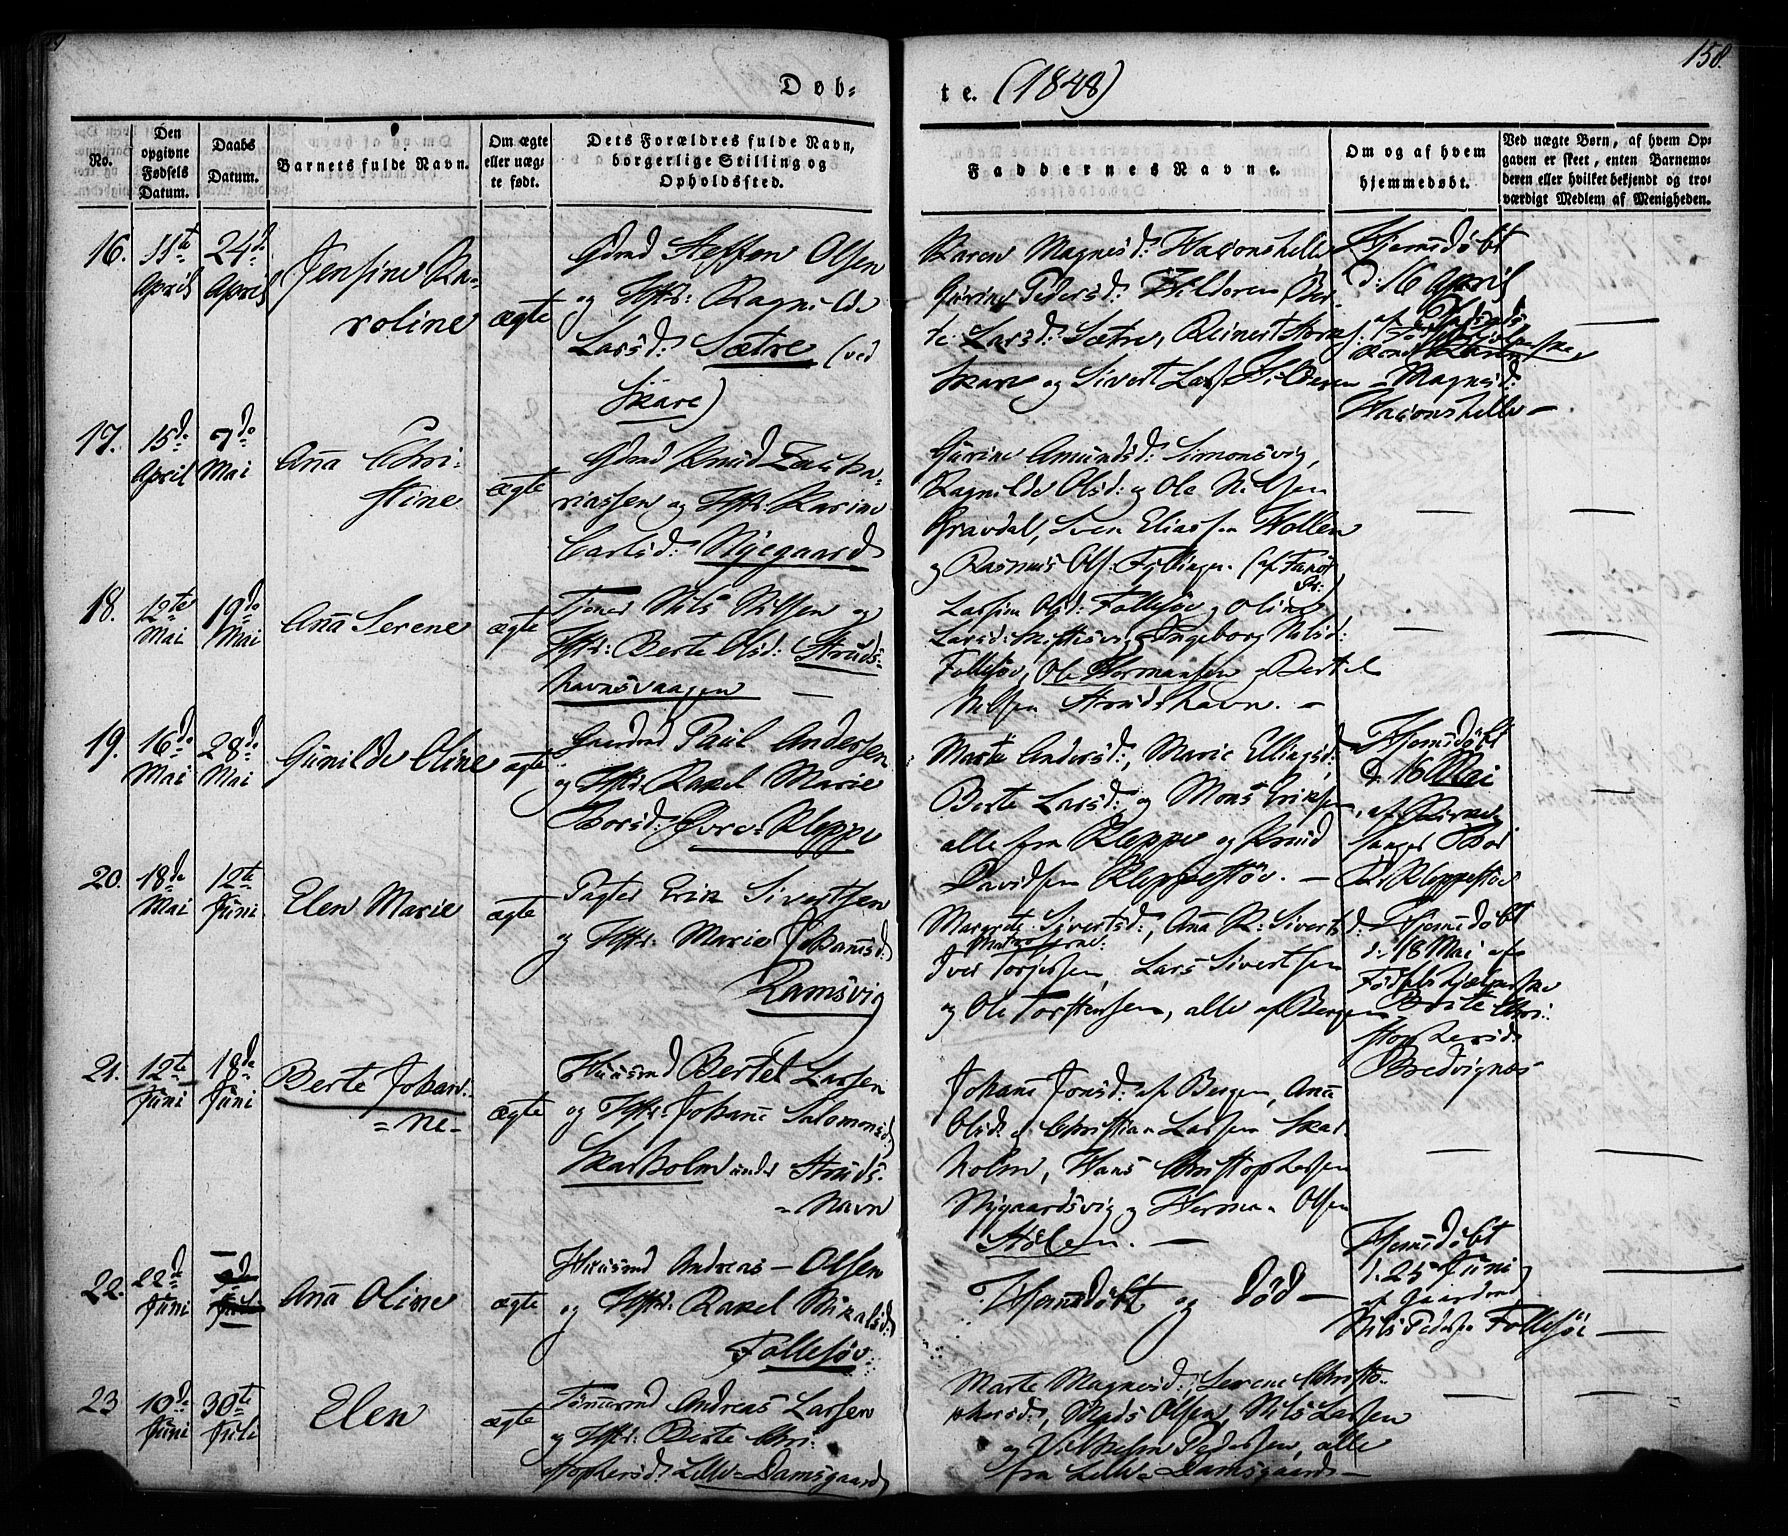 158.
Døb-
te. (1848)
No.
Den opgivne Fødsels Datum.
Daabs Datum.
Barnets fulde Navn.
Om ægte eller uægte født.
Dets Forældres fulde Navn, borgerlige Stilling og Opholdssted.
Faddernes Navne.
Om og af hvem hjemmedøbt.
Ved uægte Børn, af hvem Opgaven er skeet, enten Barnemoderen eller hvilket bekjendt og troværdigt Medlem af Menigheden.
16.
11te April
24d April
Jensine Ka-
roline
ægte
Gdmd Steffen Olsen
og Hstr: Ragnilde
Larsd: Sætre (ved
Skare)
Karen Magnesd: Haconshelle
Gurine Pedersd: Hilderen Ber-
te Larsd: Sætre, Reinert
Skare og Sivert Lars Hilderen
Hjemedøbt
d: 16 April
Magnesd:
Haconshelle -
17.
15de April
7de Mai
Ana Chri-
stine
ægte
Gdmd Knud Zacha-
riassen og Hstr: Karine
Carlsd: Nygaard
Gurine Amundsd: Simonsvig,
Ragnilde Olsd: og Ole Nilsen
Bravdal, Sven Eliassen Hollen
og Rasmus Ols: Fyllingen (af Fanø
18.
12te Mai
19de Mai
Ana Serene
ægte
Nils Nilsen og
Hstr: Berte Olsd: Struds-
havnsvaagen -
Olsd: Follesøv og Oline
Larsd: Ingeborg Nilsd:
Follesøv, Ole Hermansen og Bertel
Nilsen Strudshavn. -
19.
16de Mai
28de Mai
Gunilde Oline
ægte
Gaardmd Paul Andersen
og Hstr: Rakel Marie
Thorsd: Øvre-Kleppe
Marte Andersd:, Marie Ellingsd:
Berte Larsd: og Mons Eriksen
alle fra Kleppe og Knud
Davidsen Kleppestøv. -
Hjemedøbt
d. 16 Mai
af
Kleppestøv
20.
18de Mai
12te Juni
Elen Marie
ægte
Erik Sivertsen
og Hstr: Marie Johannesd:
Ramsvig
Margrete Sivertsd:, Ana K: Sivertsd:
Iver Torjersen, Lars Sivertsen
og Ole Torstensen, alle af Bergen
Hjemedøbt
d: 18 Mai af
Fødselshjelperske
Brite Chri-
stophersd:
Bredvignes
21.
12te Juni
18de Juni
Berte Johan-
= ne -
ægte
Huusmd Bertel Larsen
og Hstr: Johane Salomonsd:
Skarholm under Struds-
= havn
Johane Jonsd: af Bergen, Ane
Olsd: og Christian Larsen Skar-
holm, Hans Christophersen
Nygaardsvig og Herman Olsen
Stølen. -
22.
22de Juni
Ana Oline
ægte
Huusmd Andreas - Olsen
og Hstr: Rakel Nikolsd:
Follesøv.
Hjemedøbt og død -
Hjemedøbt
d. 25 Juni
af Gaardmd
Nils Peders Follesøe -
23
10de Juni
30te Juli
Elen
ægte
Andreas Larsen
og Hstr: Berte Chri-
stophersd: Lille-Damsgaard
Marte Magnesd:, Serene Christo-
phersd:, Mads Olsen, Nils Larsen
og Vilhelm Pedersen, alle
fra Lille-Damsgaard -